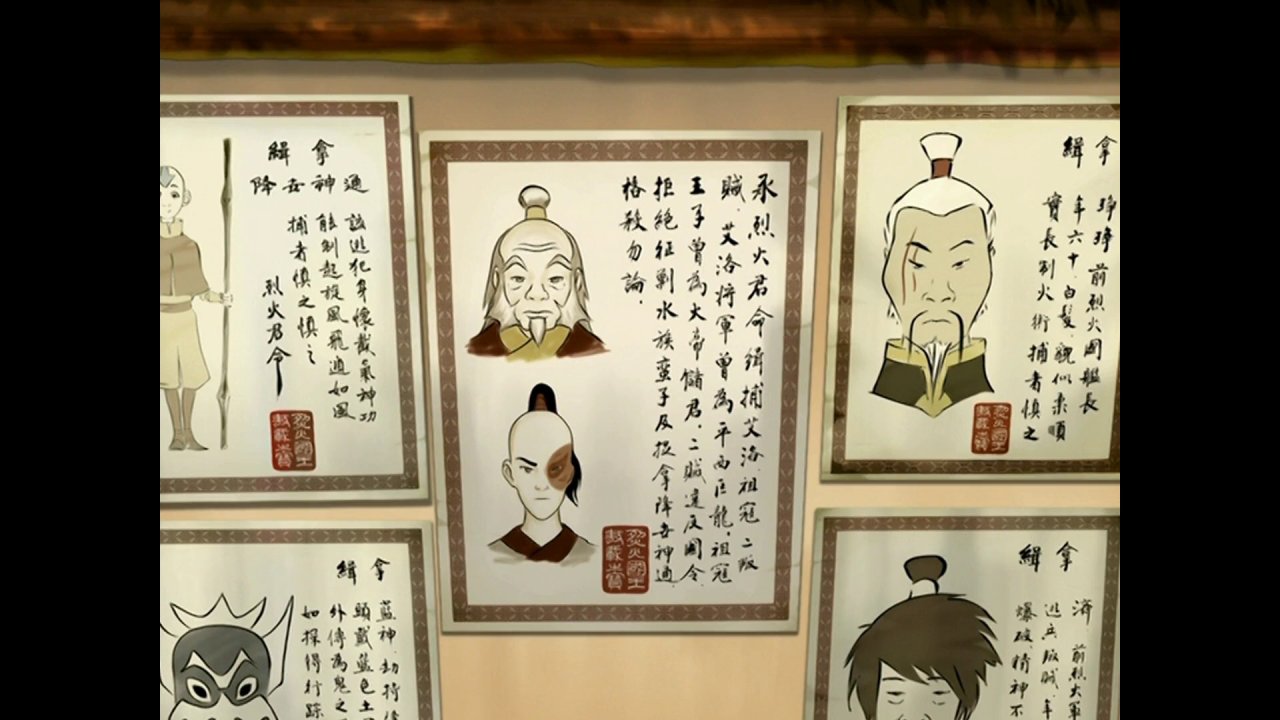 緝拿
降世神通
該逃犯身懷戴氣神功
能制起旋風飛通如風
捕者慎之慎之
烈火君令
承烈火君命緝捕艾洛祖寇二叛
賊．艾洛將軍曾為平西巨龍．祖寇
王子曾為火帝儲君．二賊違反國令
拒絕征剿水族蠻子及捉拿降世神通
格殺勿論．
緝拿
錚錚前烈火國艦長
年六十．白髮．觀似柔順
實長制火術捕者慎之
緝拿
藍神劫持
頭戴藍色
外傳為鬼之
如探得行踪
緝拿
濟 前烈火軍
逃兵叛賊．年
爆破．精神不